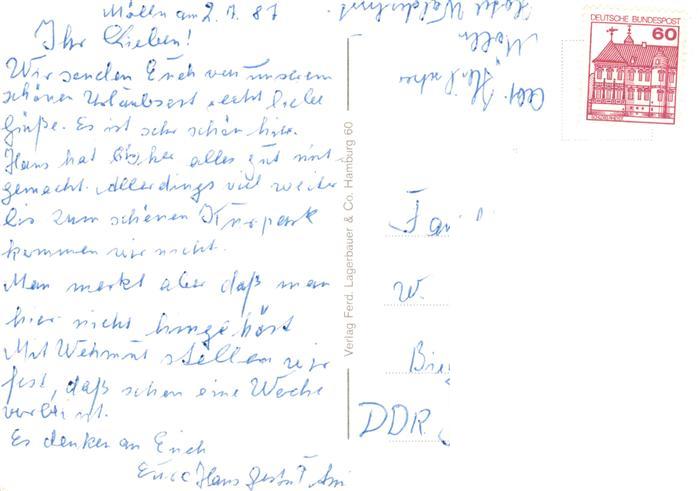 Mölln am 2.7.87
Ihr Lieben!
Wir senden Euch von unserem
schönen Urlaubsort recht liebe
Grüße. Es ist sehr schön hier.
Hans hat bisher alles gut mit
gemacht. Allerdings viel weiter
bis zum schönen Kurpark
kommen wir nicht.
Man merkt aber daß man
hier nicht hingehört
Mit Wehmut stellen wir
fest, daß schon eine Woche
vorbei ist.
Es denken an Euch
Hans
Verlag Ferd. Lagerbauer & Co. Hamburg 60
Mölln
DEUTSCHE BUNDESPOST
60
Fam
W.
DDR